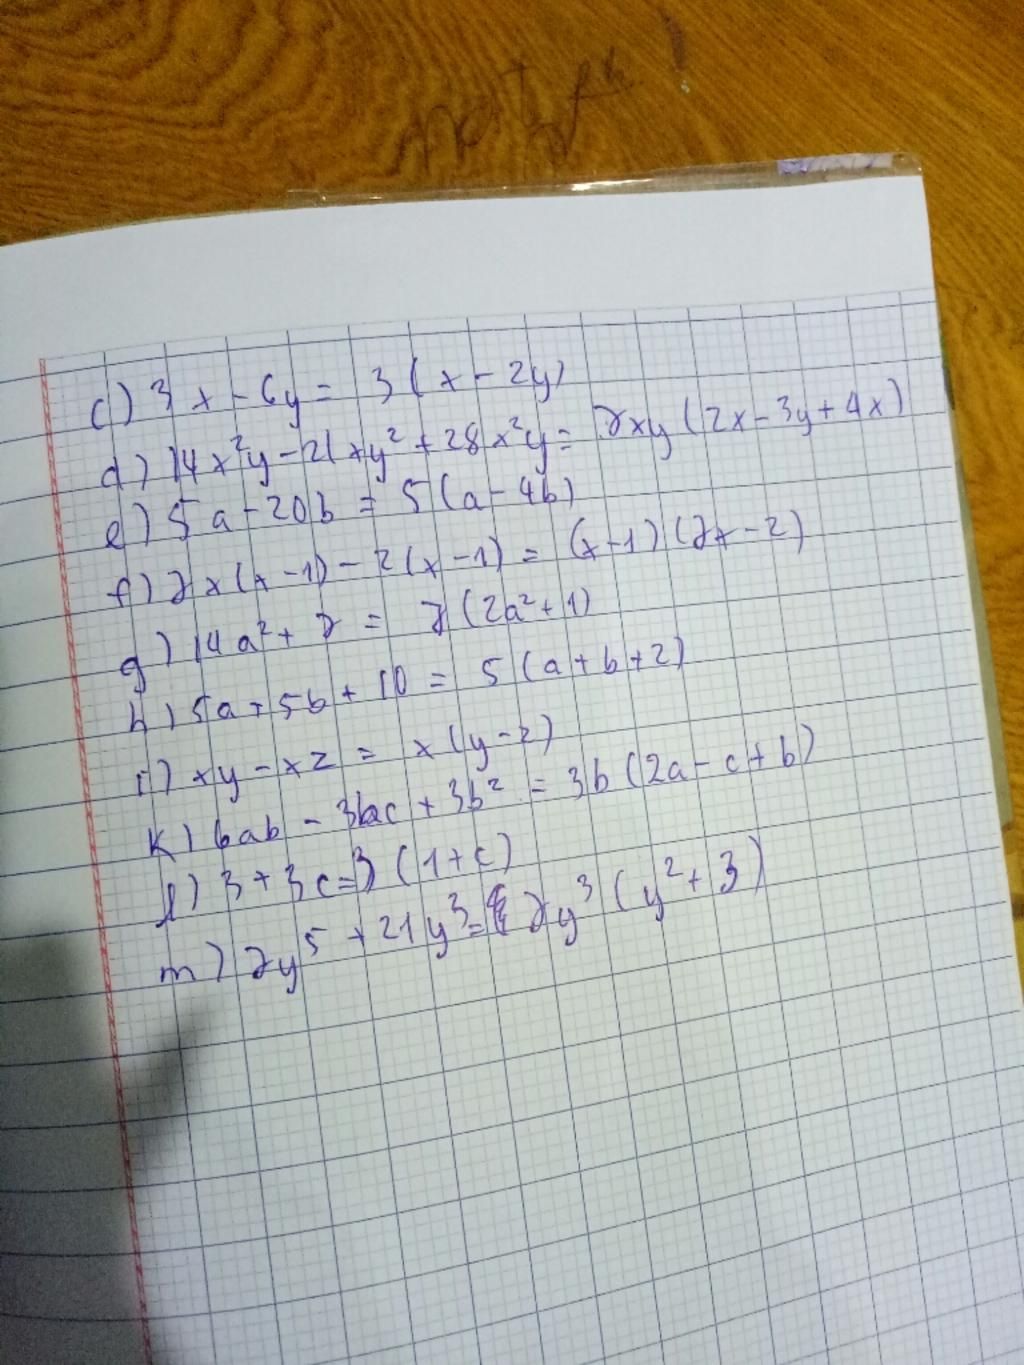 c) 3x - 6y = 3(x - 2y)
d) 14x²y - 21xy² + 28x²y = 7xy(2x - 3y + 4x)
e) 5a - 20b = 5(a - 4b)
f) 7x(x - 1) - 2(x - 1) = (x - 1)(7x - 2)
g) 14a² + 7 = 7(2a² + 1)
h) 5a + 5b + 10 = 5(a + b + 2)
i) xy - xz = x(y - z)
k) 6ab - 3bc + 3b² = 3b(2a - c + b)
l) 3 + 3c = 3(1 + c)
m) 7y⁵ + 21y³ = 7y³(y² + 3)